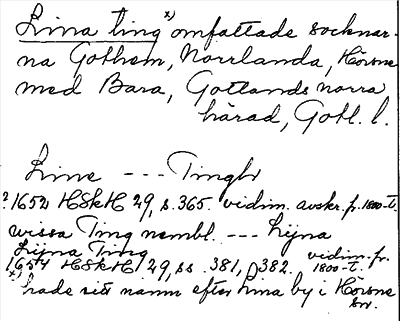 Lina ting x) omfattade socknar-
na Gothem, Norrlanda, Hörsne
med Bara, Gotlands norra
härad, Gotl. l.
Line --- Tingbr
?1652 HSkH 29, s. 365. vidim. avskr. fr. 1800-t.
wissa Ting nembl. --- Lijna
Lijna Ting
1654 HSkH 29, ss. 381, 382. vidim. fr. 1800-t.
x) hade sitt namn efter Lina by i Hörsne
sn.